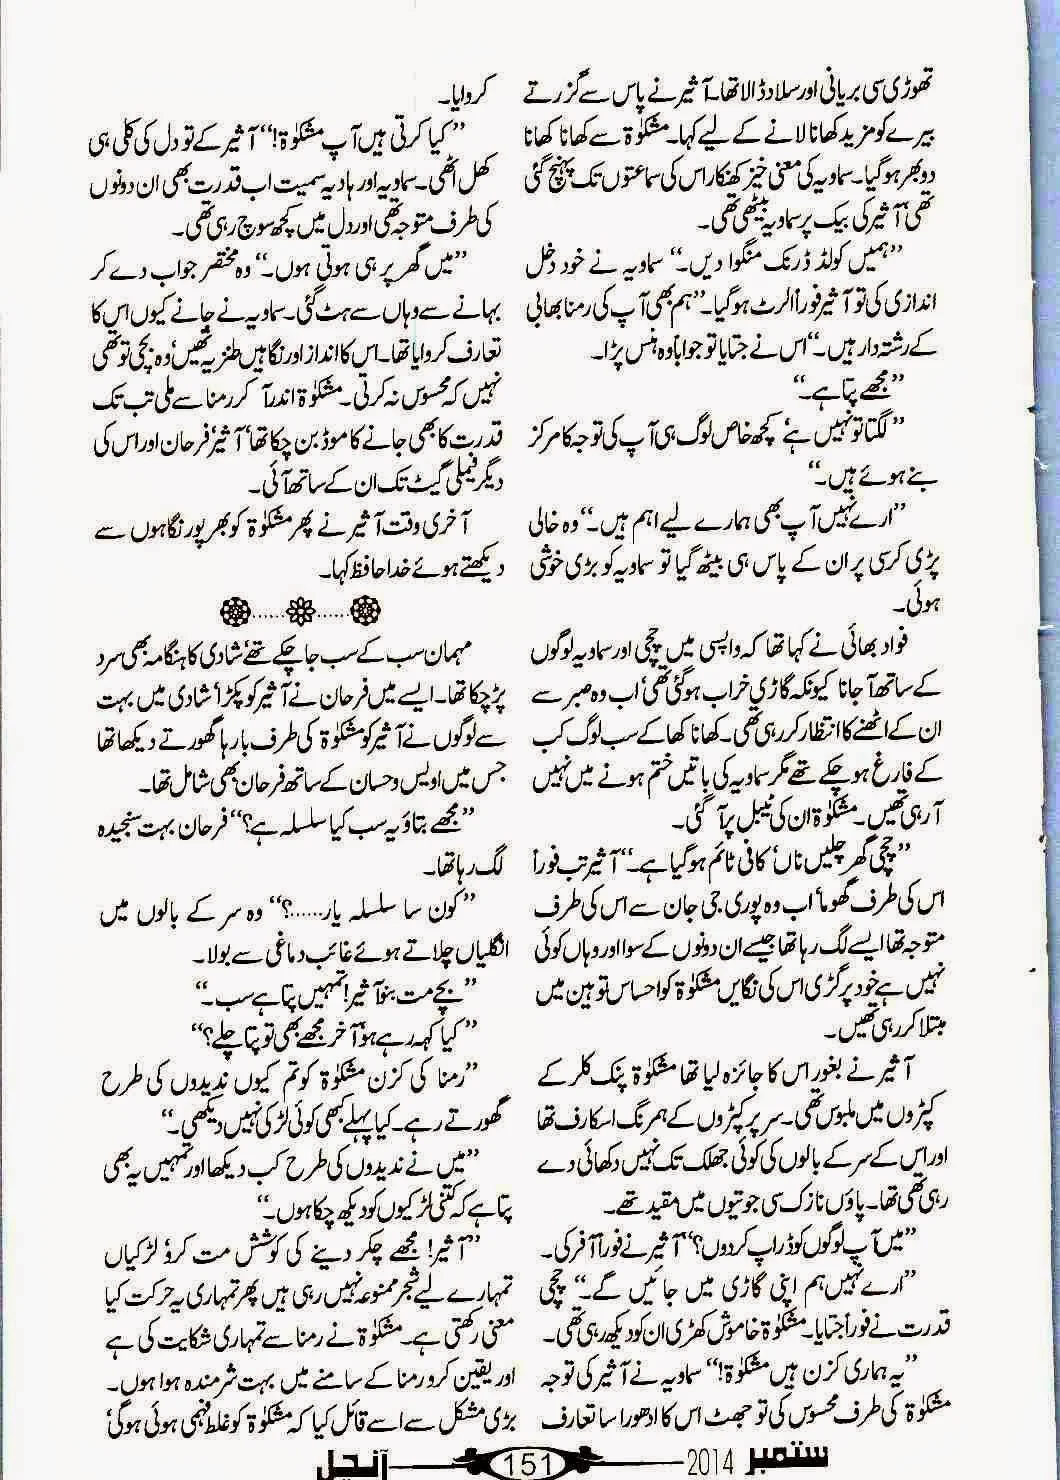 تھوڑی سی بریانی اور سلاد ڈالا تھا۔ آثیر نے پاس سے گزرتے
بیرے کو مزید کھانا لانے کے لیے کہا۔ مشکوٰۃ سے کھانا کھانا
دوبھر ہوگیا۔ سماویہ کی معنی خیز کھنکار اس کی سماعتوں تک پہنچ گئی
تھی‘ آثیر کی بیک پر سماویہ بیٹھی تھی۔
”ہمیں کولڈ ڈرنک منگوا دیں۔“ سماویہ نے خود دخل
اندازی کی تو آثیر فوراً الرٹ ہوگیا۔ ”ہم بھی آپ کی رمنا بھابی
کے رشتہ دار ہیں۔“ اس نے جتایا تو جواباً وہ ہنس پڑا۔
”مجھے پتا ہے۔“
”لگتا تو نہیں ہے‘ کچھ خاص لوگ ہی آپ کی توجہ کا مرکز
بنے ہوئے ہیں۔“
”ارے نہیں آپ بھی ہمارے لیے اہم ہیں۔“ وہ خالی
پڑی کرسی پر ان کے پاس ہی بیٹھ گیا تو سماویہ کو بڑی خوشی
ہوئی۔
فواد بھائی نے کہا تھا کہ واپسی میں چچی اور سماویہ لوگوں
کے ساتھ آجانا کیونکہ گاڑی خراب ہوگئی تھی‘ اب وہ صبر سے
ان کے اٹھنے کا انتظار کر رہی تھی۔ کھانا کھا کے سب لوگ کب
کے فارغ ہوچکے تھے مگر سماویہ کی باتیں ختم ہونے میں نہیں
آرہی تھیں۔ مشکوٰۃ ان کی ٹیبل پر آ گئی۔
”چچی گھر چلیں ناں‘ کافی ٹائم ہوگیا ہے۔“ آثیر تب فوراً
اس کی طرف گھوما‘ اب وہ پوری جی جان سے اس کی طرف
متوجہ تھا ایسے لگ رہا تھا جیسے ان دونوں کے سوا اور وہاں کوئی
نہیں ہے خود پر گڑی اس کی نگایں مشکوٰۃ کو احساس توہین میں
مبتلا کر رہی تھیں۔
آثیر نے بغور اس کا جائزہ لیا تھا مشکوٰۃ پنک کلر کے
کپڑوں میں ملبوس تھی۔ سر پر کپڑوں کے ہمرنگ اسکارف تھا
اور اس کے سر کے بالوں کی کوئی جھلک تک نہیں دکھائی دے
رہی تھی تھا۔ پاؤں نازک سی جوتیوں میں مقید تھے۔
”میں آپ لوگوں کو ڈراپ کردوں؟“ آثیر نے فوراً آفر کی۔
”ارے نہیں ہم اپنی گاڑی میں جائیں گے۔“ چچی
قدرت نے فوراً جتایا۔ مشکوٰۃ خاموش کھڑی ان کو دیکھ رہی تھی۔
”یہ ہماری کزن ہیں مشکوٰۃ!“ سماویہ نے آثیر کی توجہ
مشکوٰۃ کی طرف محسوس کی تو جھٹ اس کا ادھورا سا تعارف
کروایا۔
”کیا کرتی ہیں آپ مشکوٰۃ!“ آثیر کے تو دل کی کلی ہی
کھل اٹھی۔ سماویہ اور ہادیہ سمیت اب قدرت بھی ان دونوں
کی طرف متوجہ تھی اور دل میں کچھ سوچ رہی تھی۔
”میں گھر پر ہی ہوتی ہوں۔“ وہ مختصر جواب دے کر
بہانے سے وہاں سے ہٹ گئی۔ سماویہ نے جانے کیوں اس کا
تعارف کروایا تھا۔ اس کا انداز اور نگاہیں طنزیہ تھیں‘ وہ بچی تو تھی
نہیں کہ محسوس نہ کرتی۔ مشکوٰۃ اندر آ کر رمنا سے ملی تب تک
قدرت کا بھی جانے کا موڈ بن چکا تھا‘ آثیر‘ فرحان اور اس کی
دیگر فیملی گیٹ تک ان کے ساتھ آئی۔
آخری وقت آثیر نے پھر مشکوٰۃ کو بھرپور نگاہوں سے
دیکھتے ہوئے خدا حافظ کہا۔
مہمان سب کے سب جا چکے تھے‘ شادی کا ہنگامہ بھی سرد
پڑچکا تھا۔ ایسے میں فرحان نے آثیر کو پکڑا‘ شادی میں بہت
سے لوگوں نے آثیر کو مشکوٰۃ کی طرف بارہا گھورتے دیکھا تھا
جس میں اویس وحسان کے ساتھ فرحان بھی شامل تھا۔
”مجھے بتاؤ یہ سب کیا سلسلہ ہے؟“ فرحان بہت سنجیدہ
لگ رہا تھا۔
”کون سا سلسلہ یار......؟“ وہ سر کے بالوں میں
انگلیاں چلاتے ہوئے غائب دماغی سے بولا۔
”بچے مت بنو آثیر! تمہیں پتا ہے سب۔“
”کیا کہہ رہے ہو‘ آخر مجھے بھی تو پتا چلے؟“
”رمنا کی کزن مشکوٰۃ کو تم کیوں ندیدوں کی طرح
گھورتے رہے۔ کیا پہلے کبھی کوئی لڑکی نہیں دیکھی۔“
”میں نے ندیدوں کی طرح کب دیکھا اور تمہیں یہ بھی
پتا ہے کہ کتنی لڑکیوں کو دیکھ چکا ہوں۔“
”آثیر! مجھے چکر دینے کی کوشش مت کرو‘ لڑکیاں
تمہارے لیے شجر ممنوعہ نہیں رہی ہیں پھر تمہاری یہ حرکت کیا
معنی رکھتی ہے۔ مشکوٰۃ نے رمنا سے تمہاری شکایت کی ہے
اور یقین کرو رمنا کے سامنے میں بہت شرمندہ ہوا ہوں۔
بڑی مشکل سے اسے قائل کیا کہ مشکوٰۃ کو غلط فہمی ہوئی ہوگی‘
ستمبر 2014 151 آنچل